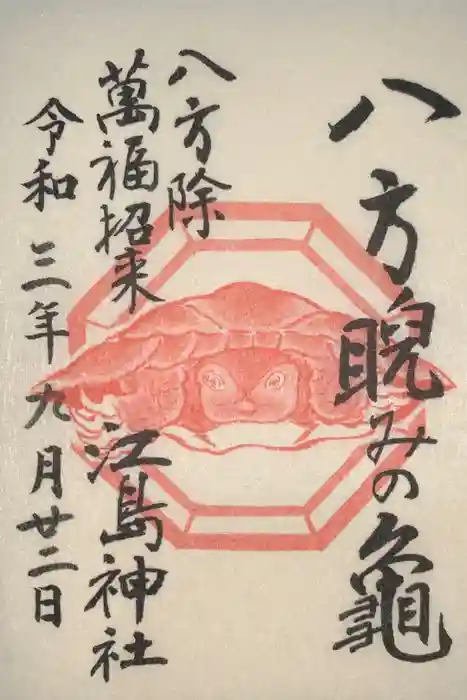 八方睨みの亀
八方除
萬福招来
江島神社
令和三年九月廿二日